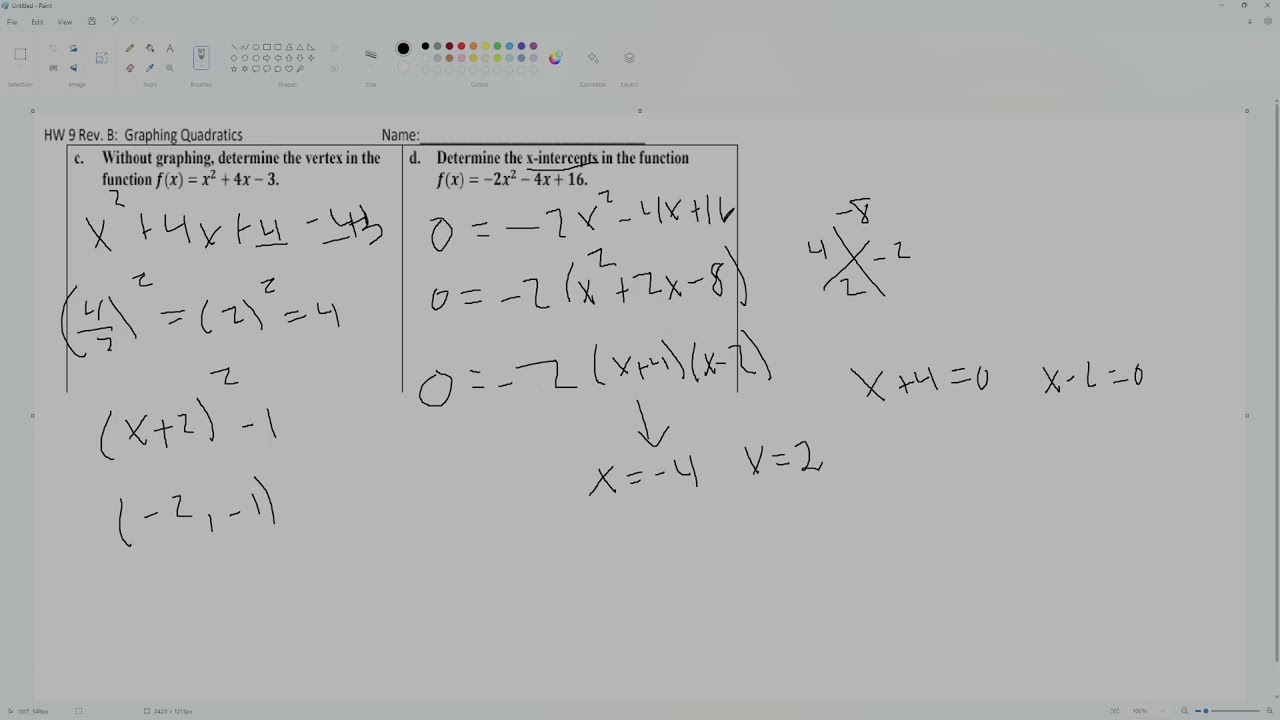 Untitled - Paint
File Edit View
Selection Image Tools Brushes Shapes Size Colors Cocreator Layers
HW 9 Rev. B: Graphing Quadratics Name:
c. Without graphing, determine the vertex in the
function f(x) = x² + 4x − 3.
x² + 4x + 4 - 4+3
(4/2)² = (2)² = 4
(x+2)² - 1
(-2, -1)
d. Determine the x-intercepts in the function
f(x) = −2x² − 4x + 16.
0 = -2x² - 4x + 16
0 = -2(x² + 2x - 8)
0 = -2(x+4)(x-2)
x = -4 x = 2
-8
4 -2
2
x+4=0 x-2=0
1017, 549px 2423 × 1213px 100%